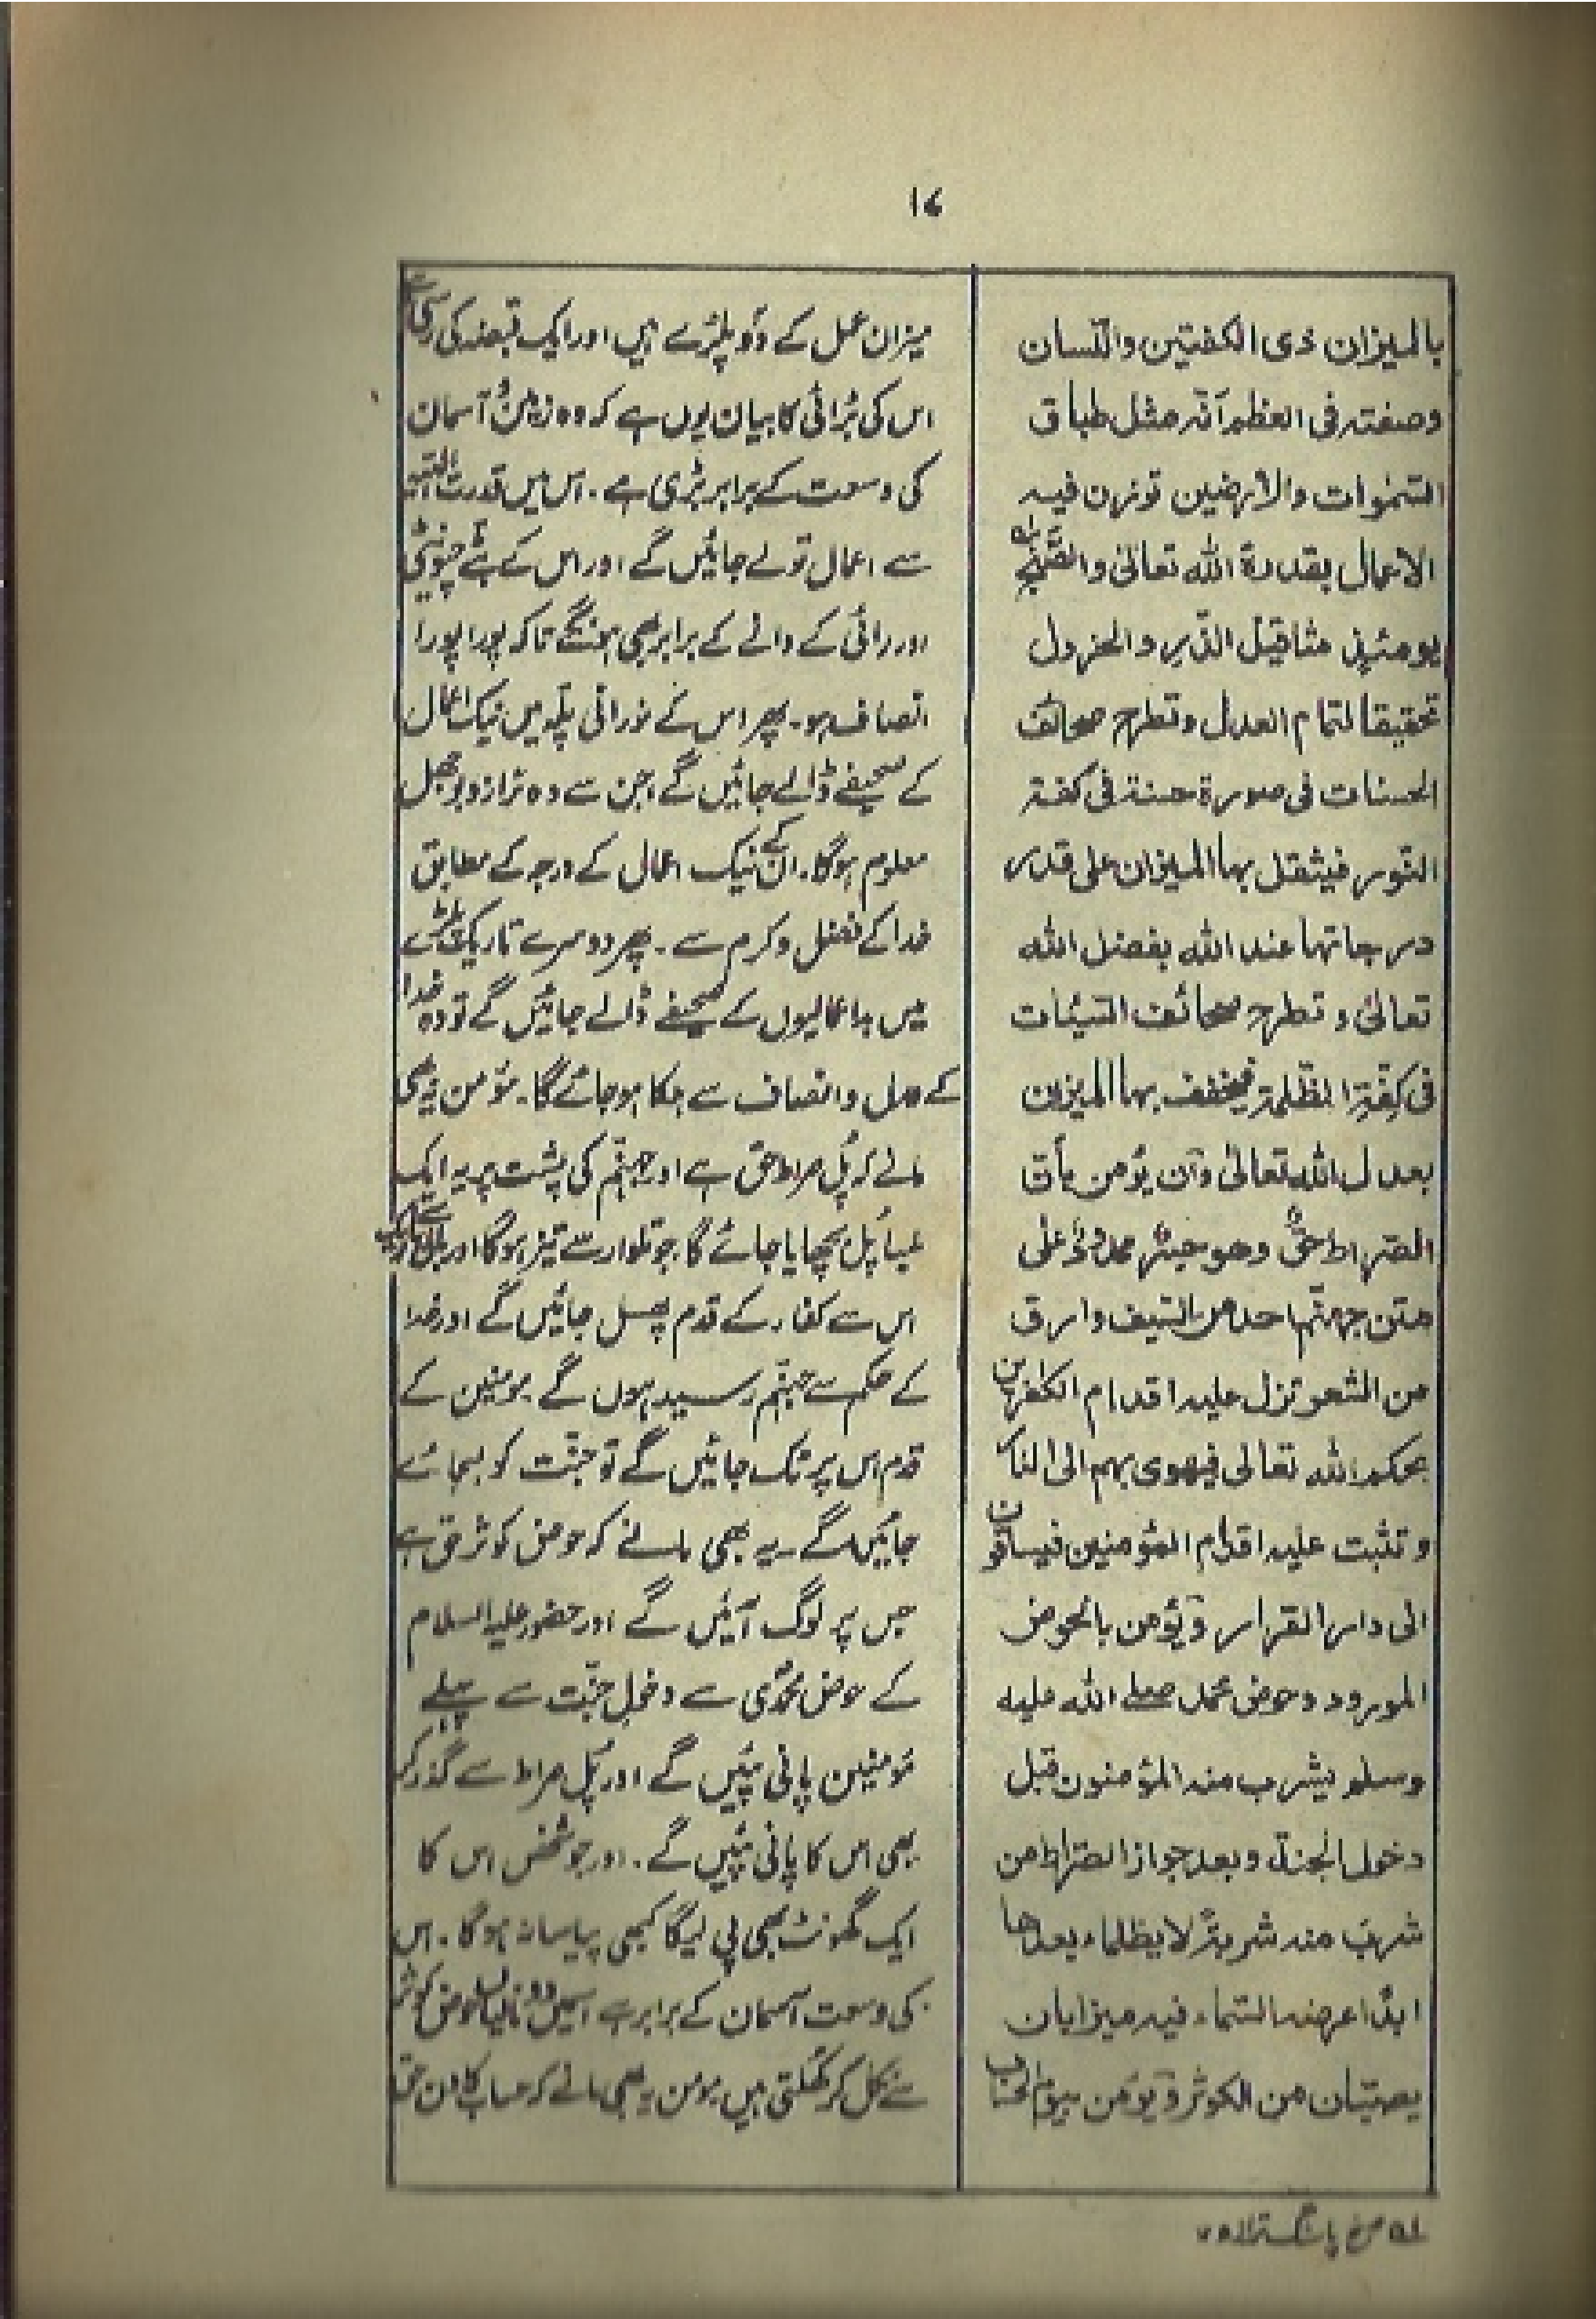 ۱۷
بالميزان ذى الكفتين واللّسان
وصفته فى العظم أنّه مثل طباق
السّمٰوات والأرضين توزن فيه
الاعمال بقدرة الله تعالىٰ والصّنج
يومئذٍ مثاقيل الذّر والخردل
تحقيقا لتمام العدل وتطرح صحائف
الحسنات فى صورة حسنة فى كفة
النّور فيثقل بها الميزان على قدر
درجاتها عند الله بفضل الله
تعالىٰ وتطرح صحائف السّيّئات
فى كِفّةِ الظّلمة فيخفف بها الميزان
بعدل الله تعالىٰ وآن يؤمن بأنّ
الصّراط حقٌّ وهو جسر ممدودٌ علىٰ
متن جهنّم احد من السّيف وارق
من الشعر تزل عليه اقدام الكافرين
بحكم الله تعالى فيهوى بهم الى النار
وتثبت عليه اقدام المؤمنين فيساقون
الى دار القرار وَيُؤمن بالحوض
المورود وحوض محمد صلى الله عليه
وسلم يشرب منه المؤمنون قبل
دخول الجنة وبعد جواز الصّراط من
شرب منه شربةً لا يظماء بعدها
ابدًا عرضه السّماء فيه ميزابان
يصبّان من الكوثر وَيؤمن بيوم الحساب
میزان عمل کے دو پلڑے ہیں اور ایک قبضہ کی رسی ہے
اس کی بڑائی کا بیان یوں ہے کہ وہ زمین و آسمان
کی وسعت کے برابر بڑی ہے۔ اس میں قدرت الٰہیہ
سے اعمال تولے جائیں گے اور اس کے بٹے چیونٹی
اور رائی کے دانے کے برابر بھی ہونگے تاکہ پورا پورا
انصاف ہو۔ پھر اس کے نورانی پلّہ میں نیک اعمال
کے صحیفے ڈالے جائیں گے جن سے وہ ترازو بوجھل
معلوم ہوگا۔ ان کے نیک اعمال کے درجہ کے مطابق
خدا کے فضل و کرم سے۔ پھر دوسرے تاریک پلڑے
میں بداعمالیوں کے صحیفے ڈالے جائیں گے تو وہ خدا
کے عدل و انصاف سے ہلکا ہو جائے گا۔ مؤمن یہ بھی
مانے کہ پُل صراط حق ہے اور جہنّم کی پشت پر یہ ایک
لمبا پُل بچھایا جائے گا جو تلوار سے تیز ہوگا اور بال سے باریک
اس سے کفار کے قدم پھسل جائیں گے اور خدا
کے حکم سے جہنّم رسید ہوں گے۔ مومنین کے
قدم اس پر ٹک جائیں گے تو جنّت کو لیجائے
جائیں گے۔ یہ بھی مانے کہ حوض کوثر حق ہے
جس پر لوگ آئیں گے اور حضور علیہ السلام
کے حوض محمّدی سے دخول جنّت سے پہلے
مؤمنین پانی پئیں گے اور پُل صراط سے گذر کر
بھی اس کا پانی پئیں گے۔ اور جو شخص اس کا
ایک گھونٹ بھی پی لیگا کبھی پیاسا نہ ہوگا۔ اس
کی وسعت آسمان کے برابر ہے اسمیں دو نالیاں حوض کوثر
سے نکل کر کھُلتی ہیں۔ مومن یہ بھی مانے کہ حساب کا دن حق